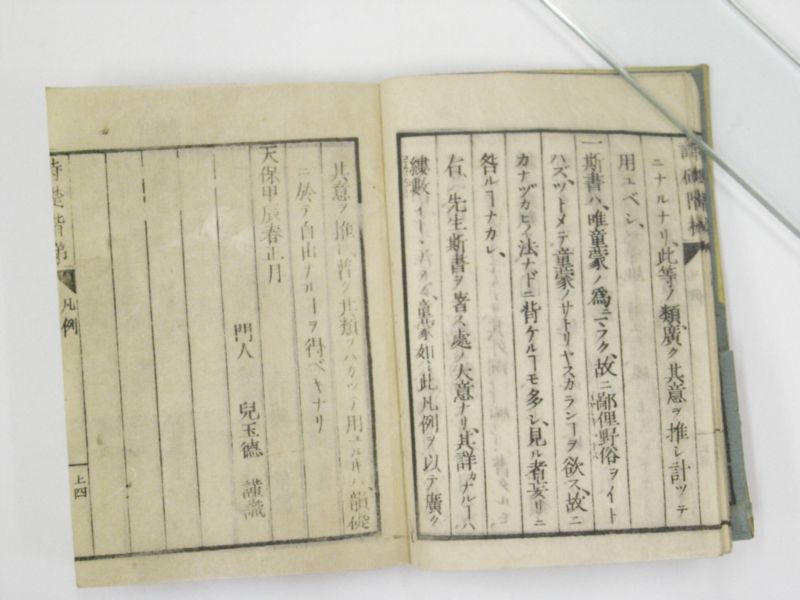 ニナルナリ、此等ノ類、廣ク其意ヲ推シ計ツテ
用ユベシ、
一斯書ハ、唯童蒙ノ爲ニ
故ニ鄙俚野俗ヲイト
ハズ、ツトメテ童蒙ノサトリヤスカランヿヲ欲ス、故ニ
カナヅカヒノ法ナドニ背ケルヿモ多シ、見ル者妄リニ
咎ルヿナカレ、
右、先生斯書ヲ著ス處ノ大意ナリ、其詳カナルヿハ
童蒙如此凡例ヲ以テ廣ク
其意ヲ推シ、普ク其類ヲハカツテ用ユル
ニ於テ自由ナルヿヲ得ベキナリ
天保甲辰春正月
門人 兒玉德 謹識
凡例
上四